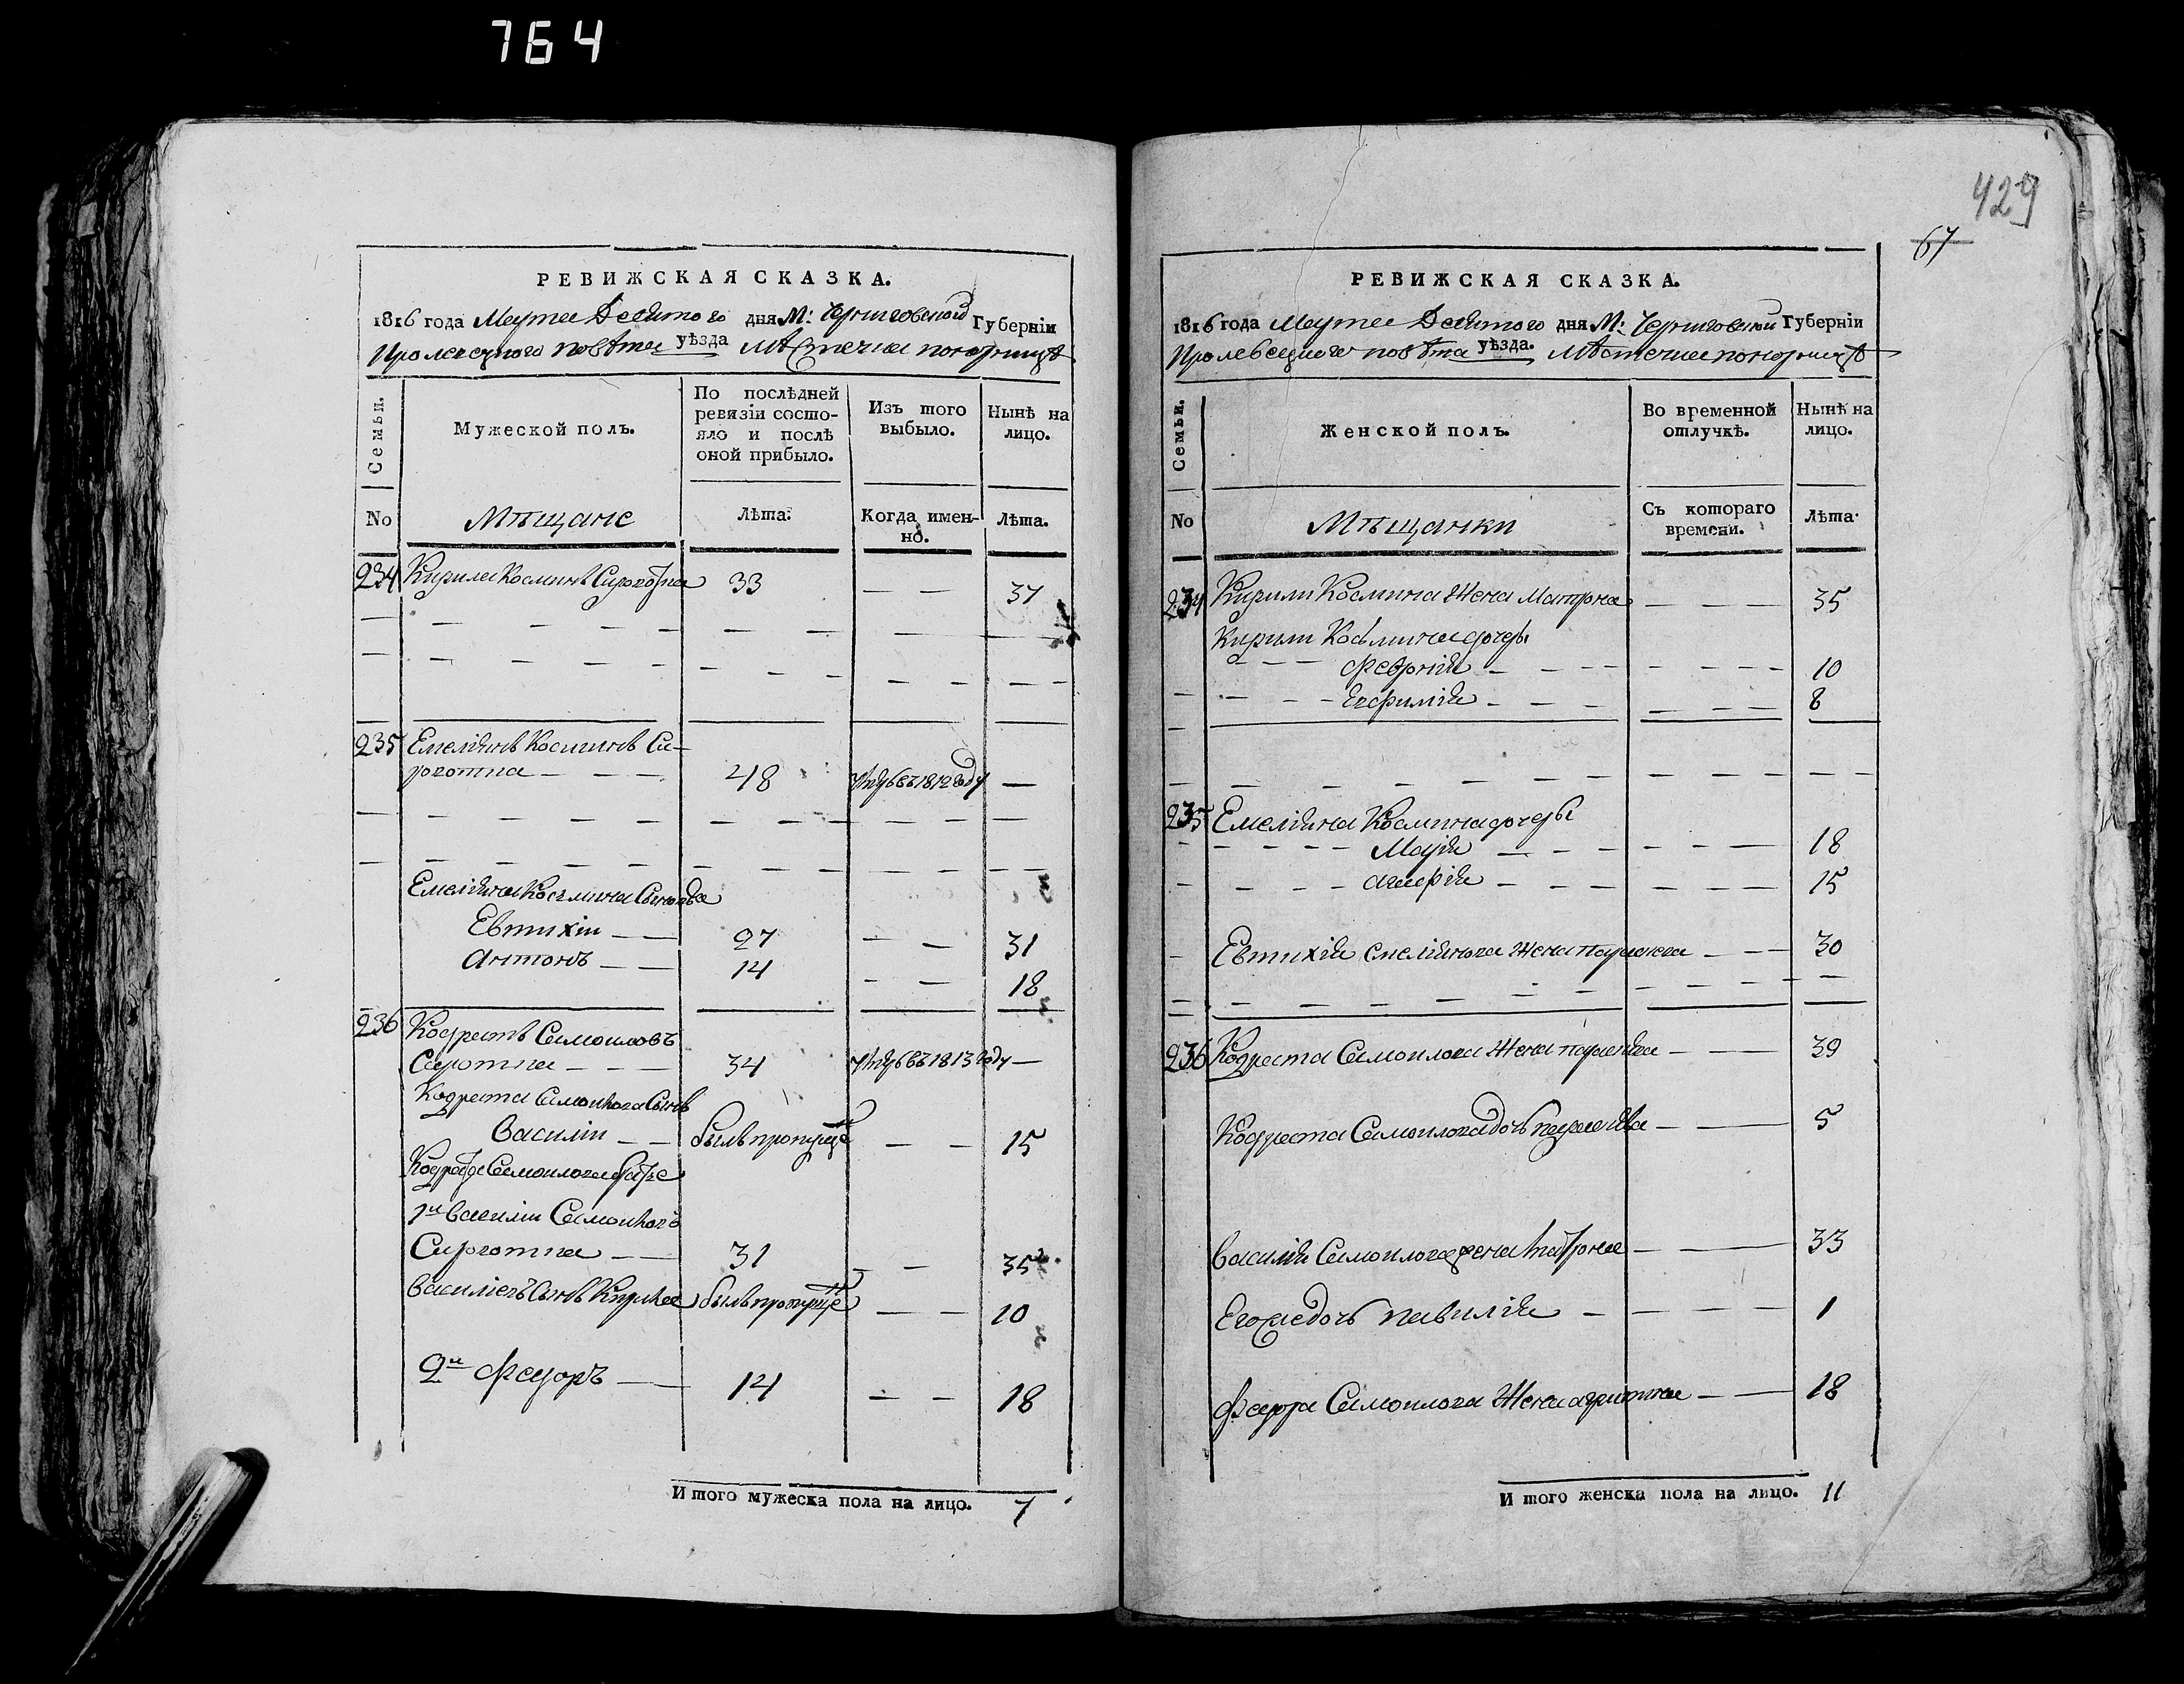 764
429
67
РЕВИЖСКАЯ СКАЗКА.
1816 года Марта Десятого дня М: Черниговской Губерніи
Кролевецкого повѣта уѣзда Мѣстечка понорницѣ
Семьи.
Мужеской полъ.
По послѣдней ревязіи состояло и послѣ оной прибыло.
Изъ того выбыло.
Нынѣ на лицо.
No
Мѣщане
Лѣта.
Когда именно.
Лѣта.
234 Кирила Косминъ Сиротка 33 — — 37
235 Емеліянъ Косминъ Си-
ротка — — — 48 умръ въ 1812 году —
Емеліяна Космина Сыновья
Евтихіи — — 27 — — 31
Антонъ — — 14 — — 18
236 Кодратъ Самоиловъ
Сиротка — — — 34 умръ въ 1813 году —
Кодрата Самоилова Сынъ
Василіи — — былъ пропуще — — 15
Кодрата Самоилова братье
1й Василіи Самоиловъ
Сиротка — — 31 — — 35
Василіевъ Сынъ Кирила былъ пропуще — — 10
2й Федоръ — 14 — — 18
Итого мужеска пола на лицо. 7
РЕВИЖСКАЯ СКАЗКА.
1816 года Марта Десятого дня М: Черниговской Губерніи
Кролевецкого повѣта уѣзда. Мѣстечка понорницѣ
Семьи.
Женской полъ.
Во временной отлучкѣ.
Нынѣ на лицо.
No
Мѣщанки
Съ котораго времени.
Лѣта.
234 Кирили Космина Жена Матрона — — — 35
Кирили Космина дочеры
Феврнія — — — 10
Евфимія — — — 8
235 Емеліяна Космина дочеры
Марія — — — 18
Агафія — — — 15
Евтихія Емеліянова Жена параска — — 30
236 Кодрата Самоилова Жена параскева — — 39
Кодрата Самоилова дочь параскева — — 5
Василія Самоилова жена Матрона — — 33
Егожедочь павилія — — — 1
Федора Самоилова Жена агрипина — — 18
Итого женска пола на лицо. 11